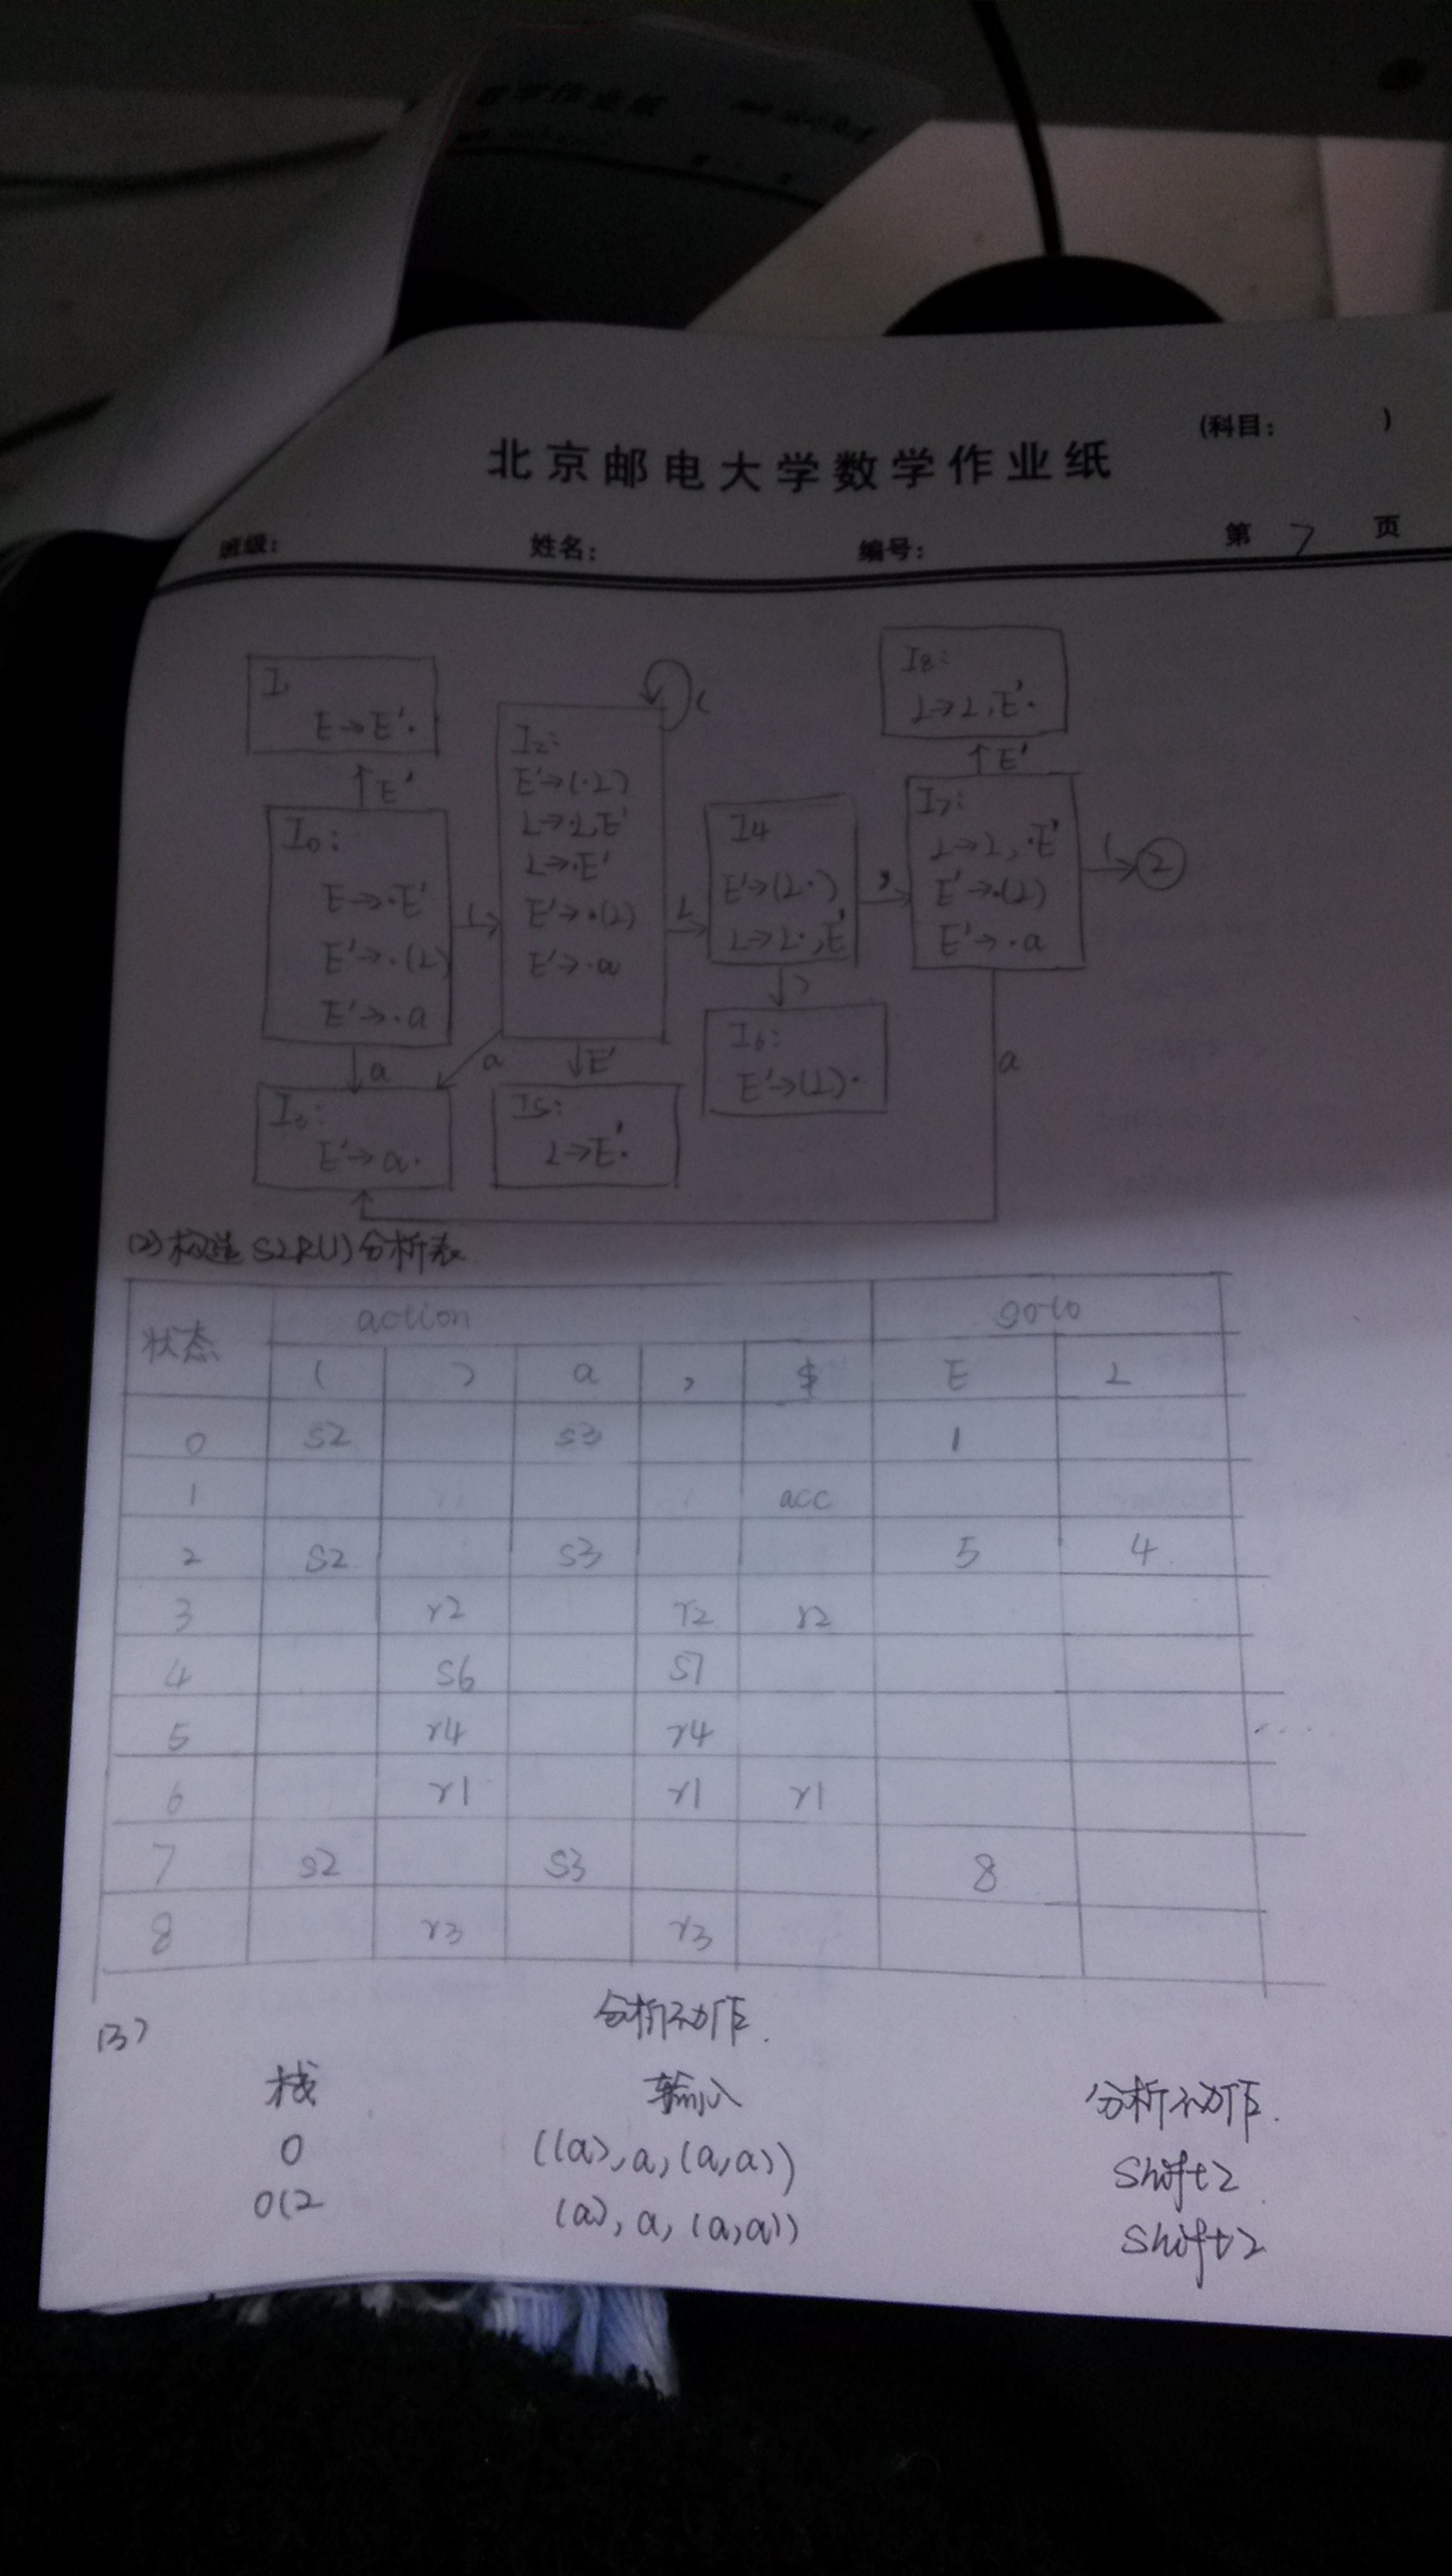 (科目: )
北京邮电大学数学作业纸
班级: 姓名: 编号: 第 7 页
I1
E→E'·
E'
I0:
E→·E'
E'→·(L)
E'→·a
(
a
I3:
E'→a·
I2:
E'→(·L)
L→·L,E'
L→·E'
E'→·(L)
E'→·a
(
a
E'
I5:
L→E'·
L
I4
E'→(L·)
L→L·,E'
)
I6:
E'→(L)·
,
I7:
L→L,·E'
E'→·(L)
E'→·a
E'
I8:
L→L,E'·
(
2
a
(2) 构造SLR(1)分析表
状态 action goto
( ) a , $ E L
0 s2 s3 1
1 acc
2 s2 s3 5 4
3 r2 r2 r2
4 s6 s7
5 r4 r4
6 r1 r1 r1
7 s2 s3 8
8 r3 r3
(3) 分析动作.
栈 输入 分析动作.
0 ((a),a,(a,a)) Shift2
0(2 (a),a,(a,a)) Shift2